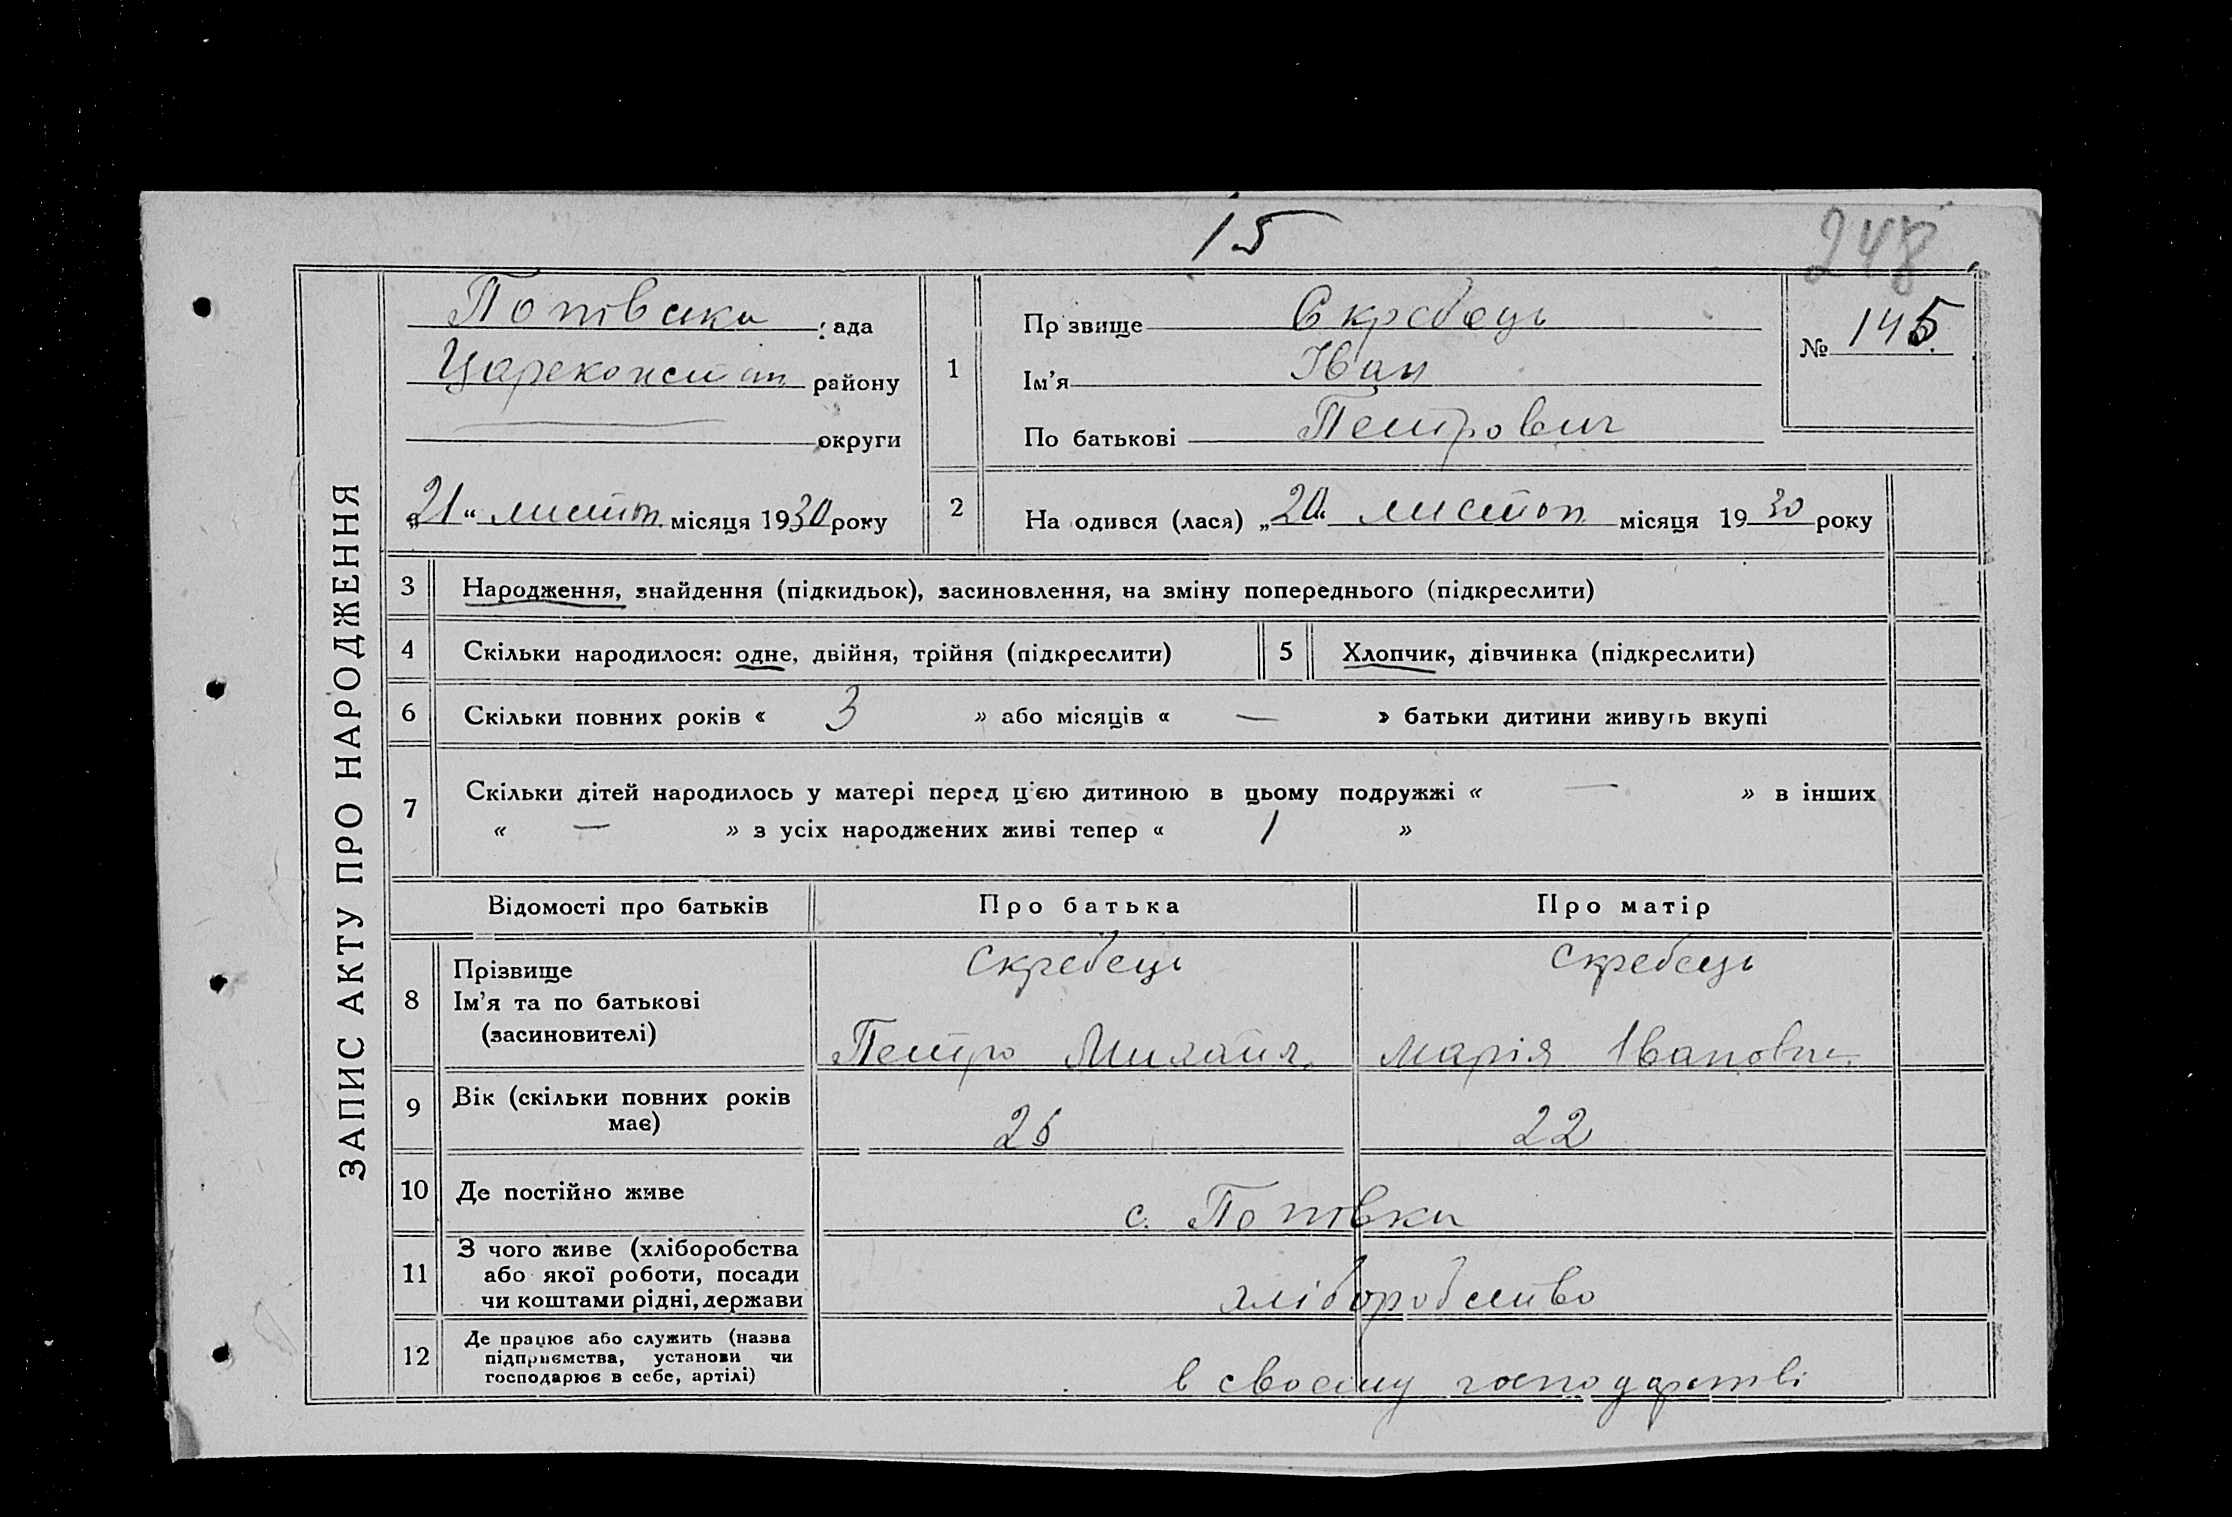 15
248
ЗАПИС АКТУ ПРО НАРОДЖЕННЯ
Попівська рада
Царекокст районy
округи
„21“ листоп. місяця 1930 року
1
Прізвище Скребець
Ім'я Іван
По батькові Петрович
№ 145
2
На одився (лася) „20“ листоп. місяця 1930 року
3 Народження, знайдення (підкидьок), засиновлення, на зміну попереднього (підкреслити)
4 Скільки народилося: одне, двійня, трійня (підкреслити)
5 Хлопчик, дівчинка (підкреслити)
6 Скільки повних років « 3 » або місяців « — » батьки дитини живуть вкупі
7 Скільки дітей народилось у матері перед цією дитиною в цьому подружжі « — » в інших
« — » з усіх народжених живі тепер « 1 »
Відомості про батьків Про батька Про матір
8 Прізвище
Ім'я та по батькові
(засиновителі)
Скребець
Петро Михайл.
Скребець
Марія Івановн.
9 Вік (скільки повних років
має)
26 22
10 Де постійно живе
с. Попівка
11 З чого живе (хліборобства
або якої роботи, посади
чи коштами рідні, держави
хліборобство
12 Де працює або служить (назва
підприємства, установи чи
господарює в себе, артілі)
в своєму господарстві